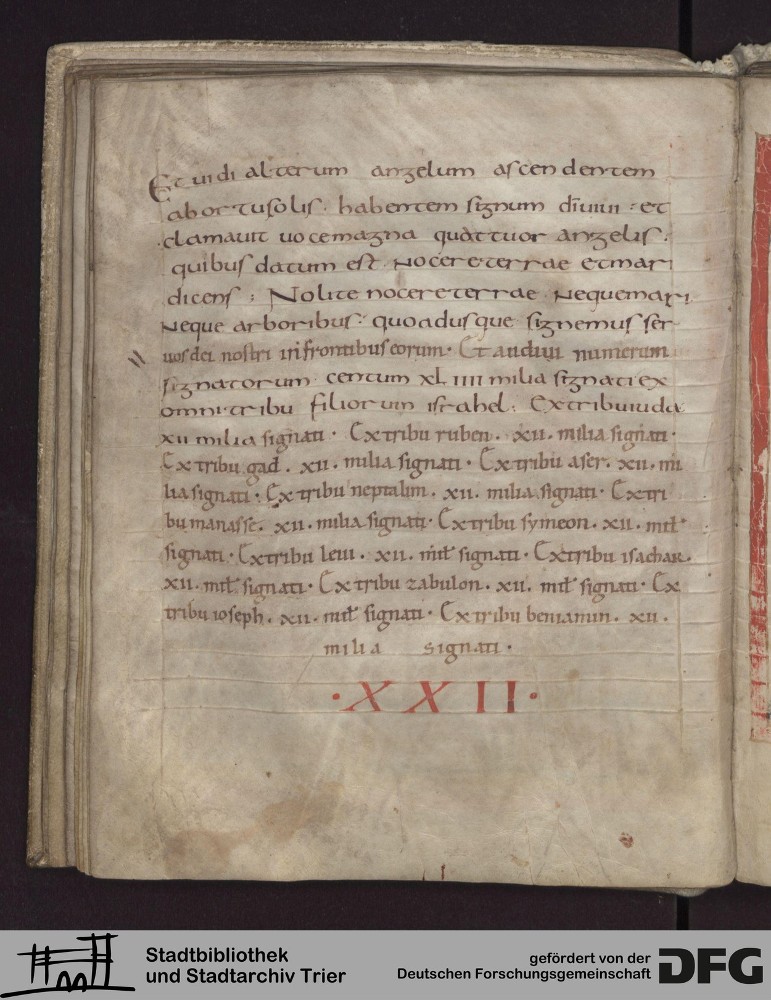 Et uidi alterum angelum ascendentem
ab ortu solis · habentem signum di uiui · et
clamauit uoce magna quattuor angelis ·
quibus datum est nocere terrae et mari
dicens : Nolite nocere terrae neque mari
neque arboribus · quoadusque signemus ser
uos dei nostri in frontibus eorum · Et audiui numerum
signatorum centum XL IIII milia signati ex
omni tribu filiorum israhel : Ex tribu iuda
xii milia signati · Ex tribu ruben . xii . milia signati ·
Ex tribu gad . xii . milia signati · Ex tribu aser . xii . mi
lia signati · Ex tribu neptalim . xii . milia signati · Ex tri
bu manasse . xii . milia signati · Ex tribu symeon . xii . mil
signati · Ex tribu leui . xii . mil signati · Ex tribu isachar .
xii . mil signati · Ex tribu zabulon . xii . mil signati · Ex
tribu ioseph . xii . mil signati · Ex tribu beniamin . xii .
milia signati ·
· X X I I ·
Stadtbibliothek
und Stadtarchiv Trier
gefördert von der
Deutschen Forschungsgemeinschaft
DFG